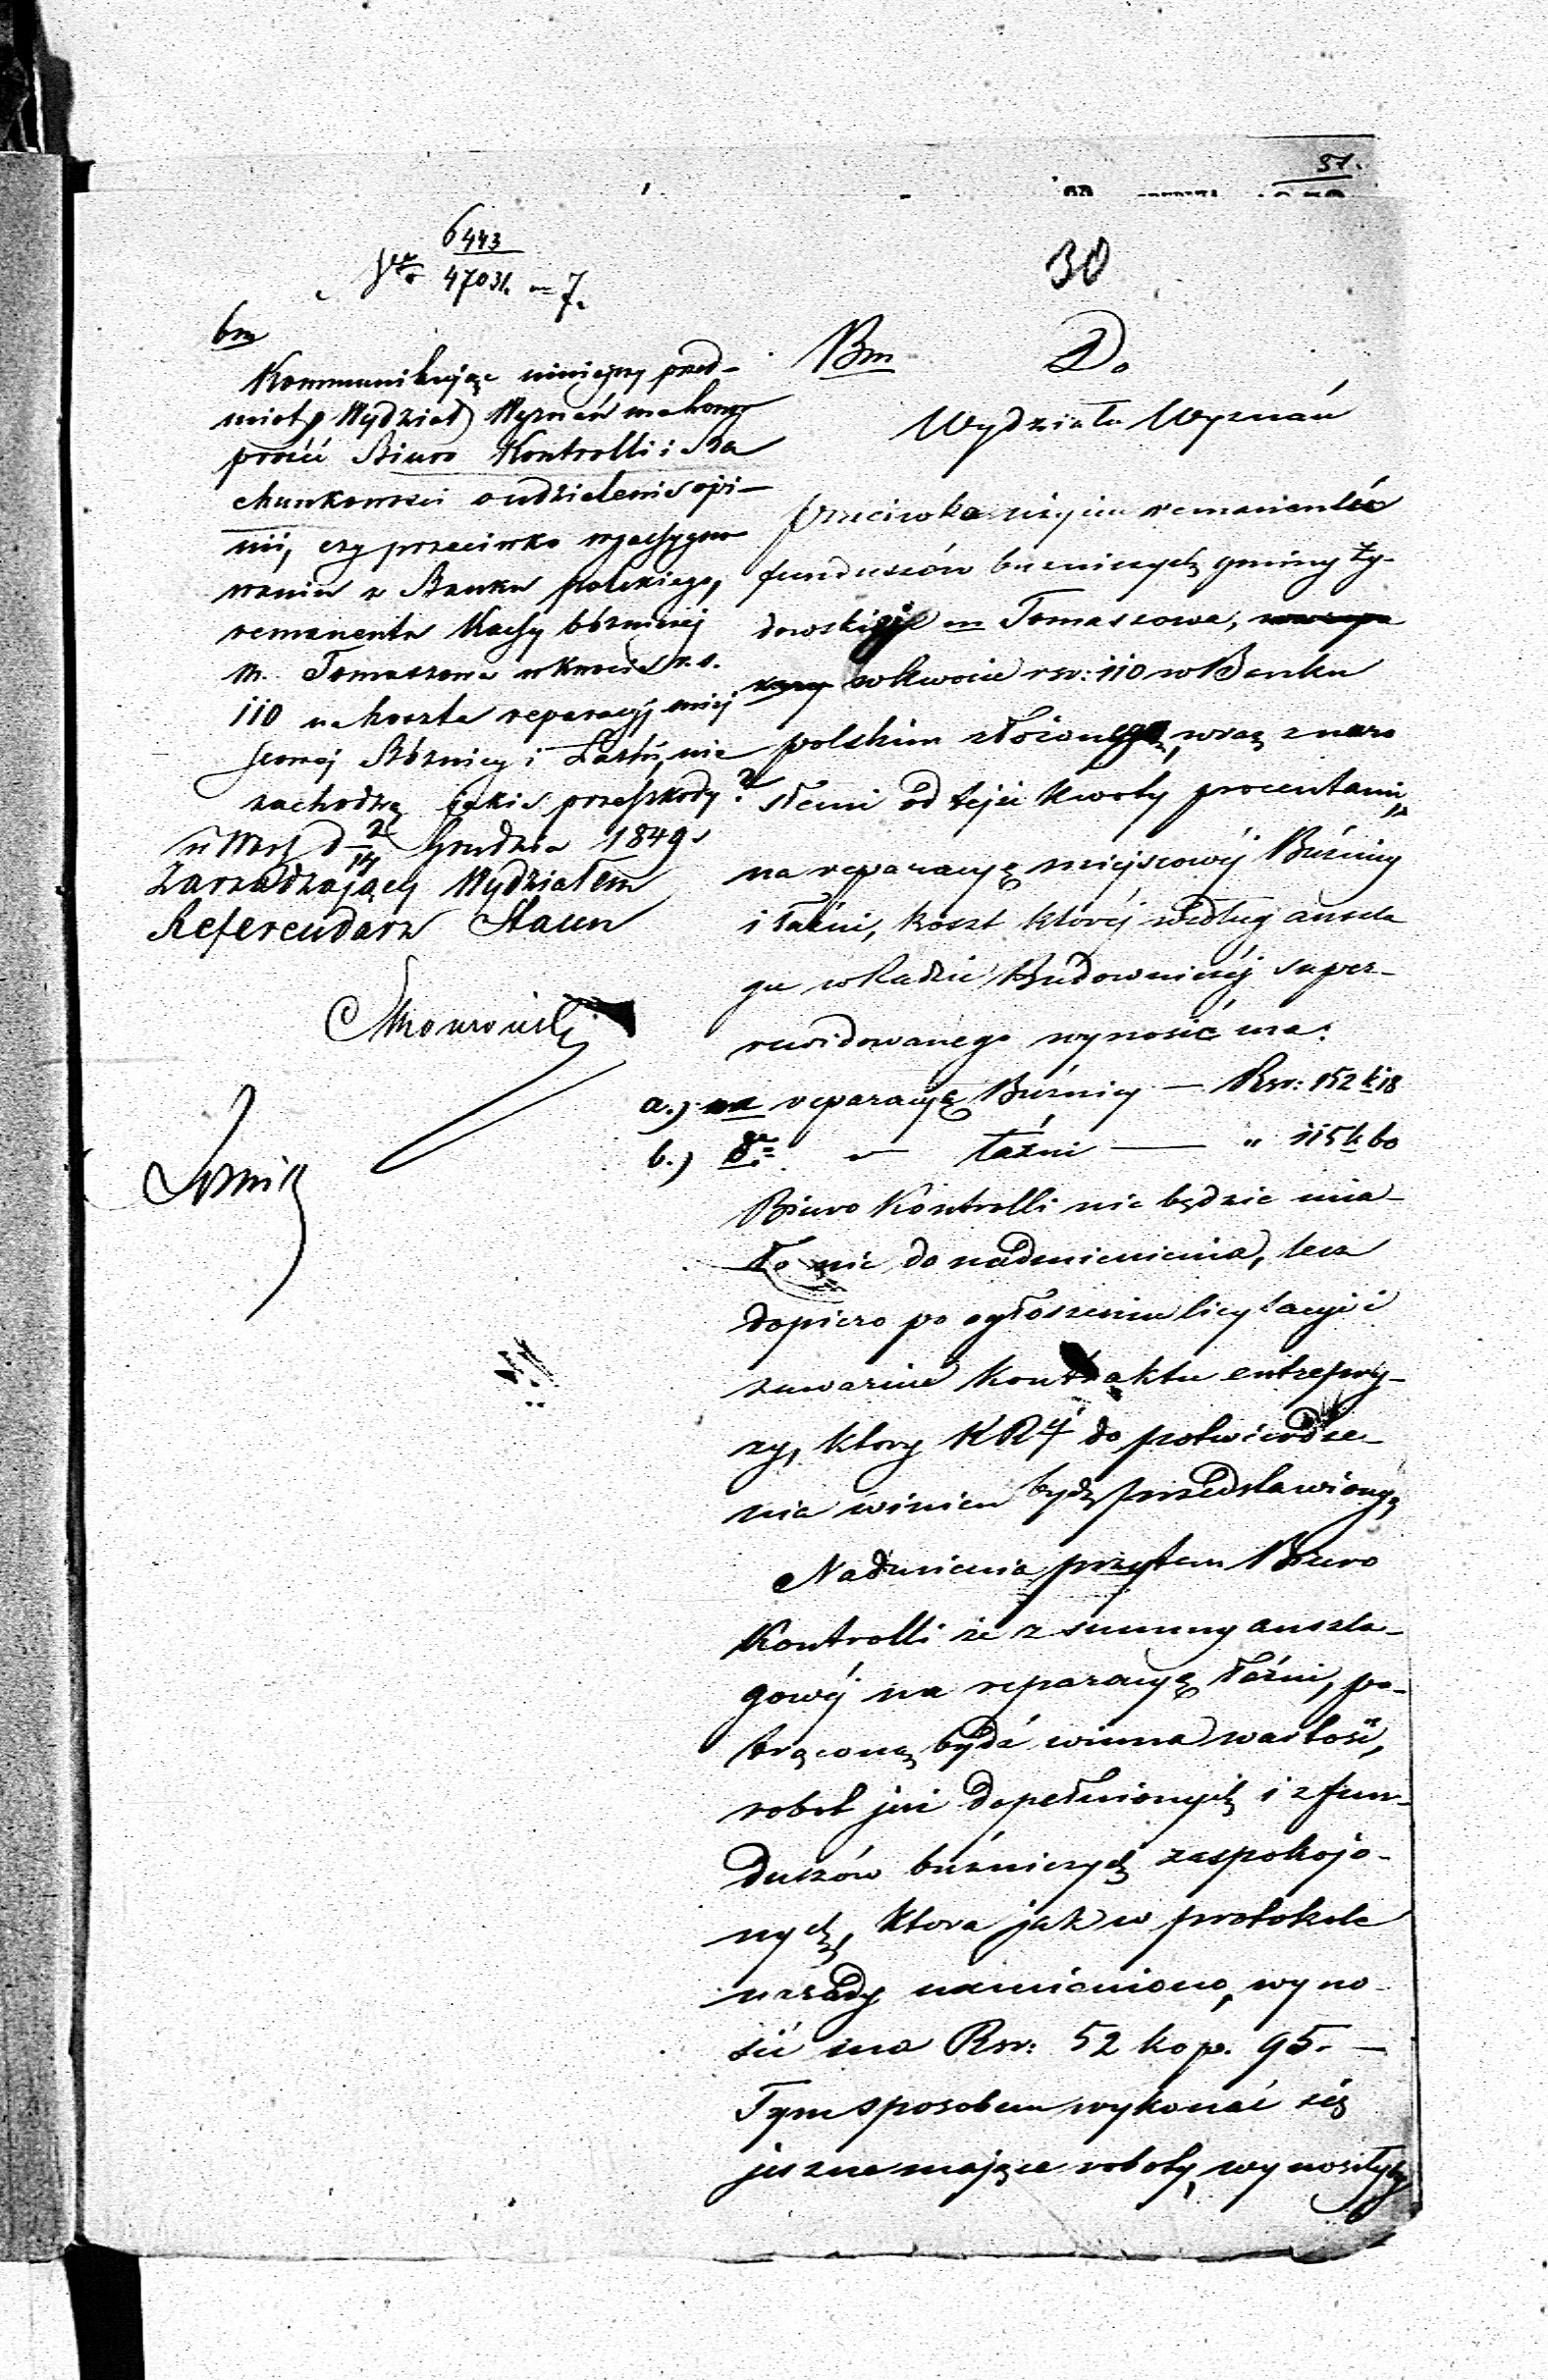 51.
6443
47031. = 7.
30
bm
Kommunikując niniejszy przed-
miot, Wydział Wyznań ma honor
prosić Biuro Kontrolli i Ra
chunkowości o udzielenie opi-
nii, czy przeciwko wyassygno
waniu z Banku polskiego,
remanentu Kassy bóżniczej
m. Tomaszowa w kwocie r. s.
110 na koszta reparacyj miej
scowej Bóżnicy i Łaźni, nie
zachodzą jakie przeszkody?
d 2/14 Grudnia 1849 r
Zarządzający Wydziałem
Referendarz
Bm Do
Wydziału Wyznań
Przeciwko użyciu remanentów
funduszów buźniczych gminy ży-
dowskiej m Tomaszowa,
w kwocie rsr: 110 w Banku
polskim złożonych, wraz z naro
słemi od tejże kwoty procentami,
na reparacyę miejscowéj Buźnicy
i łaźni, koszt któréj według anszla
gu w Radzie Budowniczéj super-
rewidowanego wynosić ma:
a.) na reparacyę Buźnicy — Rsr: 152 k 18
b.) do " łaźni — " 115 k 60
Biuro Kontrolli nie będzie mia-
ło nic do nadmienienia, lecz
dopiero po ogłoszeniu licytacyi i
zawarciu kontraktu entrepry-
zy, ktory KR do potwierdze-
nia winien bydź przedstawiony,
Nadmienia przytem Biuro
Kontrolli że z summy anszla-
gowéj na reparacyę łaźni, po-
trąconą bydź winna wartość,
robot już dopełnionych i z fun-
duszów buźniczych zaspokojo-
nych, ktora jak w protokole
narady namieniono, wyno-
sić ma Rsr: 52 kop. 95. —
Tym sposobem wykonać się
jeszcze mające roboty, wynosiłyby